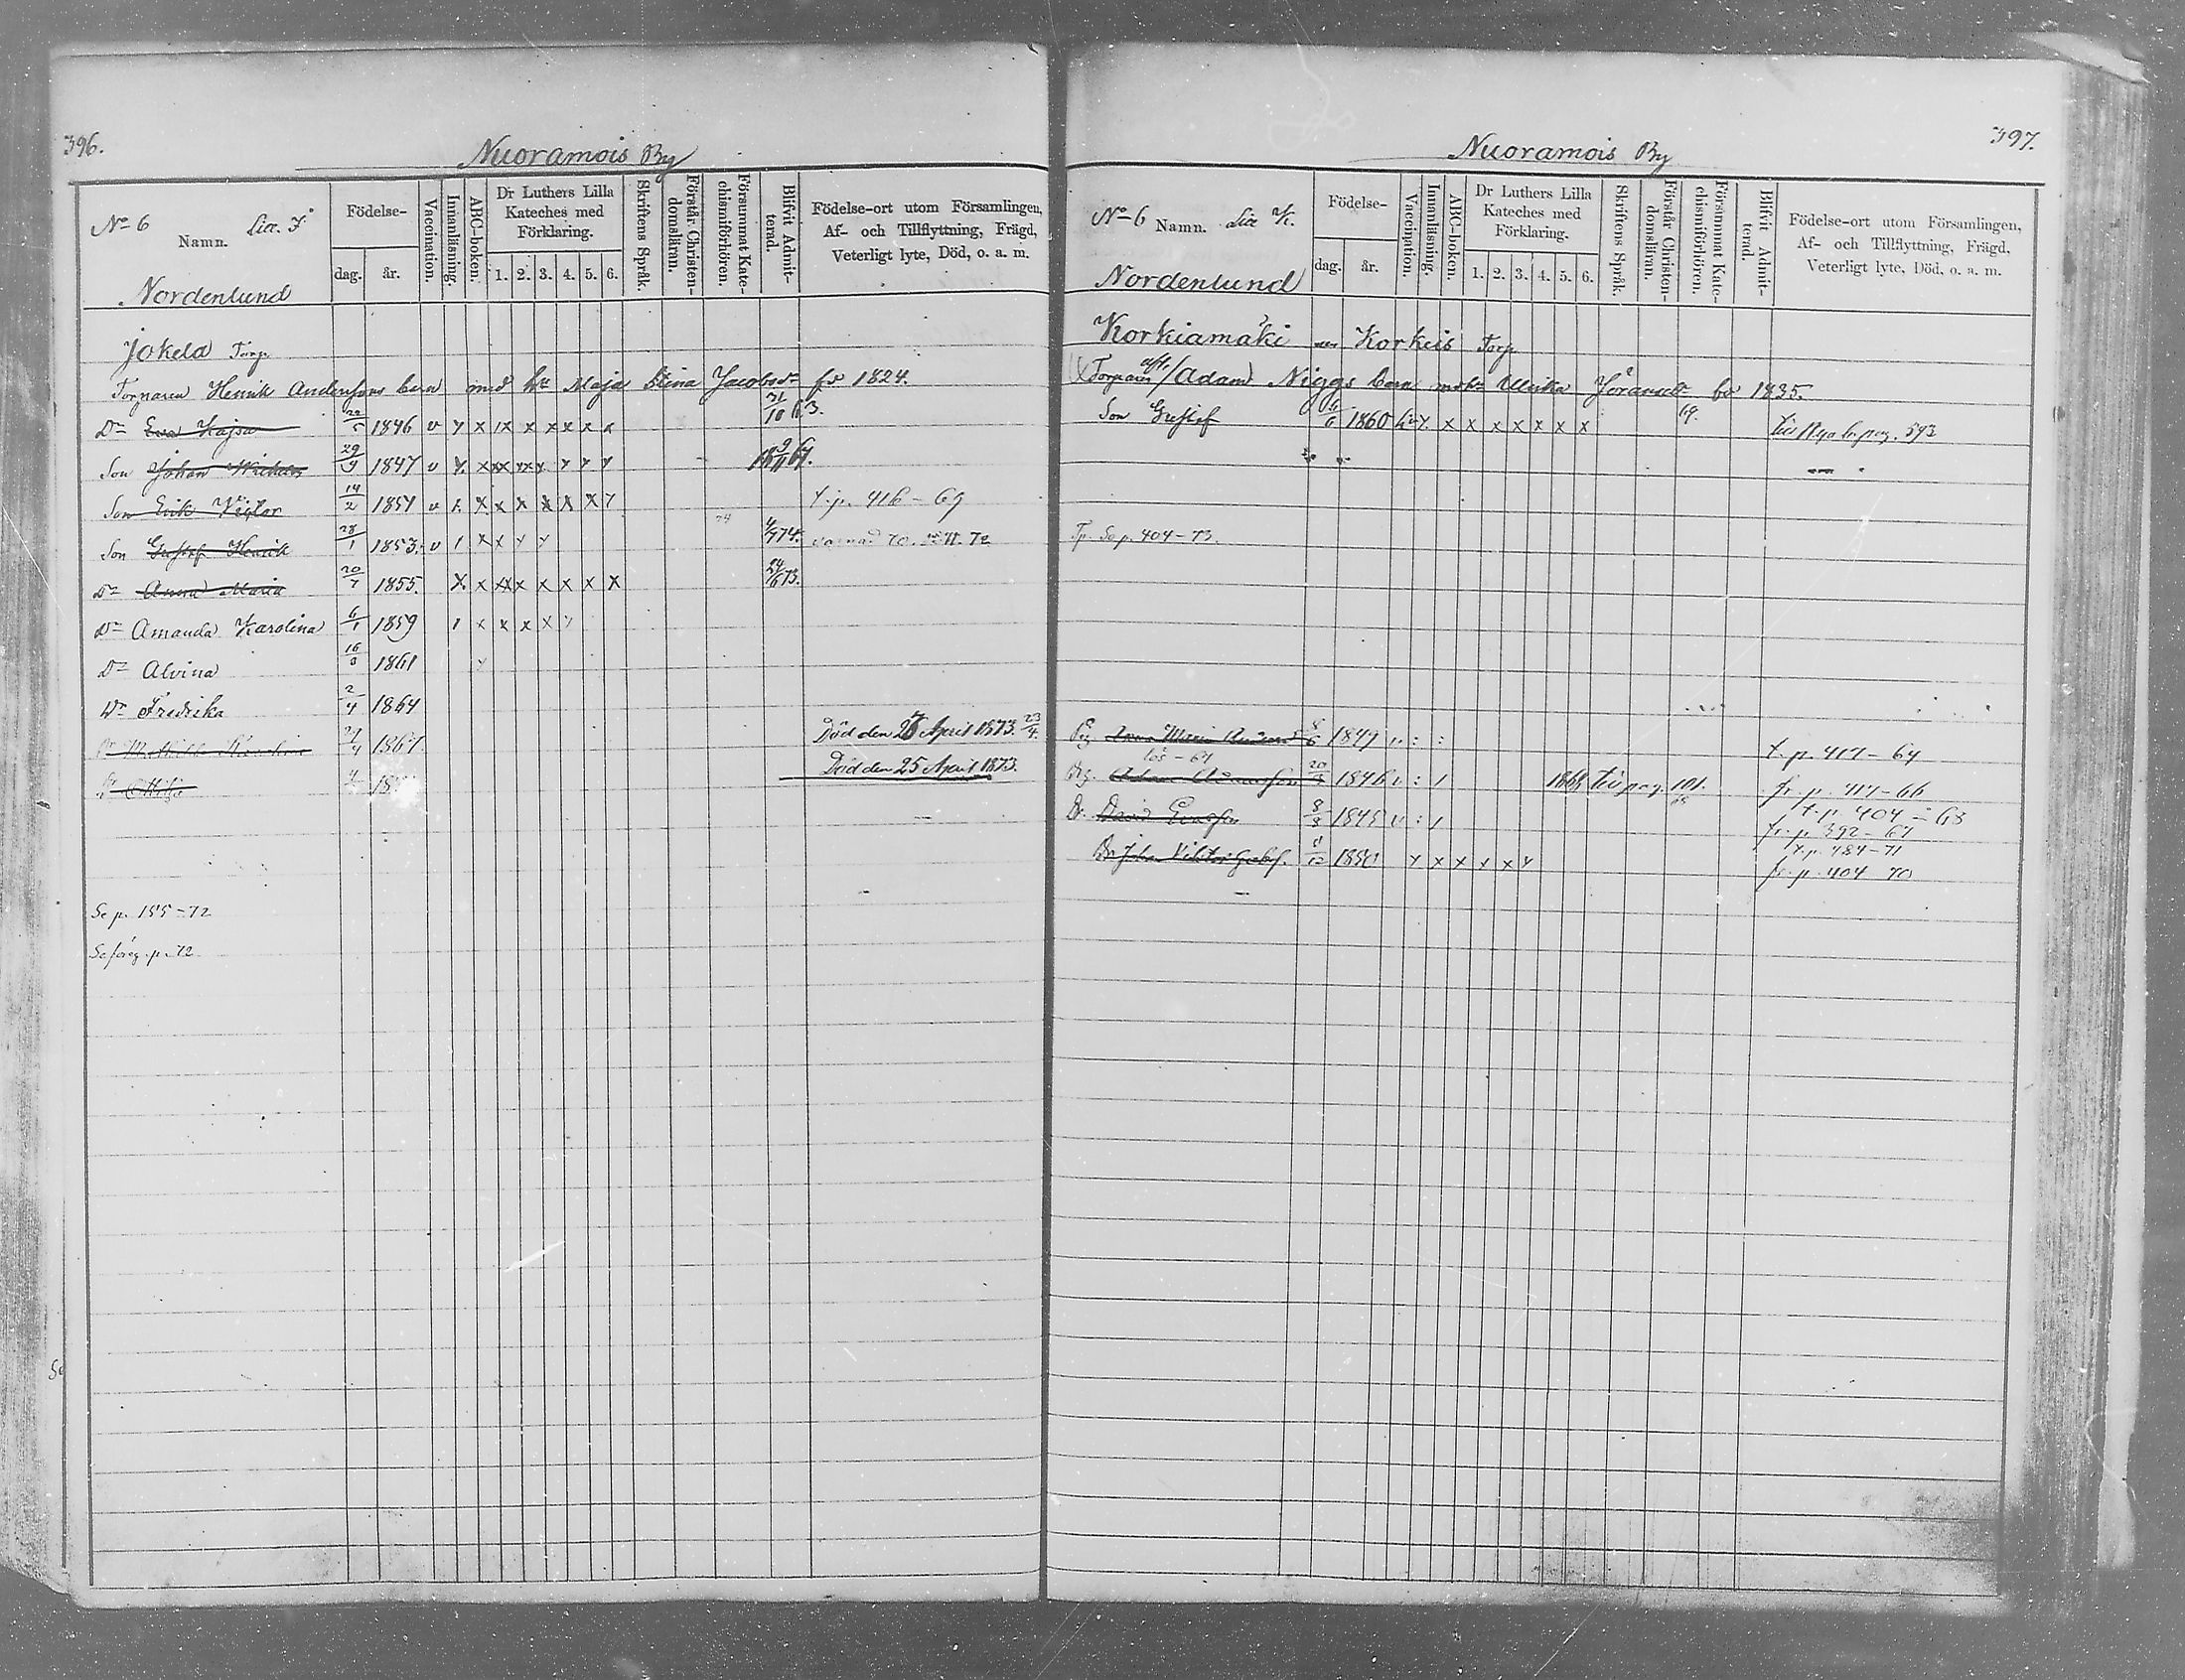 396.
Nuoramois By
No 6 Namn. Litt. F
Nordenlund
Födelse-
dag. år.
Vaccination.
Innanläsning.
ABC-boken.
Dr Luthers Lilla Kateches med Förklaring.
1. 2. 3. 4. 5. 6.
Skriftens Språk.
Förstår Christendomsläran.
Försummat Katechismiförhören.
Blifvit Admitterad.
Födelse-ort utom Församlingen,
Af- och Tillflyttning, Frägd,
Veterligt lyte, Död, o. a. m.
Jokela Torp
Torparen Henrik Andersons barn med h. Maja Stina Jacobsdr fd 1824.
Dr Eva Kajsa 22/5 1846 v y x x x x x x x 31/10 63.
Son Johan 29/9 1847 v 67.
Son Erik Viktor 14/2 1851 v x x x x x x t. p. 416-69
Son Gustaf Henrik 28/1 1853. v x x y y 74 74.
Dr Anna Maria 20/7 1855. x x x x x x x x 24/6 73.
Dr Amanda Karolina 6/1 1859 x x x x
Dr Alvina 16/8 1861
Dr Fredrika 2/4 1864
Död den April 1873. 23/4.
Död den 25 April 1873.
Se p. 155-72
Se föreg. p. 72
397.
Nuoramois By
No 6 Namn. Litt. K.
Nordenlund
Födelse-
dag. år.
Vaccination.
Innanläsning.
ABC-boken.
Dr Luthers Lilla Kateches med Förklaring.
1. 2. 3. 4. 5. 6.
Skriftens Språk.
Förstår Christendomsläran.
Försummat Katechismiförhören.
Blifvit Admitterad.
Födelse-ort utom Församlingen,
Af- och Tillflyttning, Frägd,
Veterligt lyte, Död, o. a. m.
Korkiamäki Korkeis Torp
Torparen afl. Adam Niggs barn Ulrika Göransdr fd 1835.
Son Gustaf 6/6 1860 x x x x x x x 69. Till Nya b. pag. 593
Tp. Se p. 404-73.
Pig. Anna Maria 8/6 1847 t. p. 417-64
lös-64
Drg. Adam Adamsson 1846 v : 1 1868 till pag. 101. fr. p. 417-66
t. p. 404-68
Dr. David 8/8 1845 v : 1 fr. p. 392-67
t. p. 484-71
Dr Joh. Viktor 1850 y x x x x y fr. p. 404 70